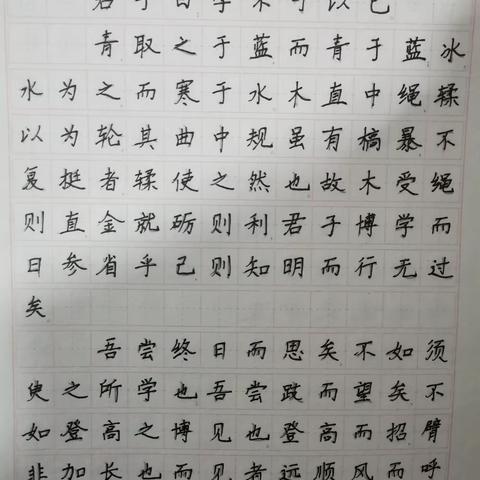 君子曰学不可以已
青取之于蓝而青于蓝冰
水为之而寒于水木直中绳輮
以为轮其曲中规虽有槁暴不
复挺者輮使之然也故木受绳
则直金就砺则利君子博学而
日参省乎己则知明而行无过
矣
吾尝终日而思矣不如须
臾之所学也吾尝跂而望矣不
如登高之博见也登高而招臂
非加长也而见者远顺风而呼